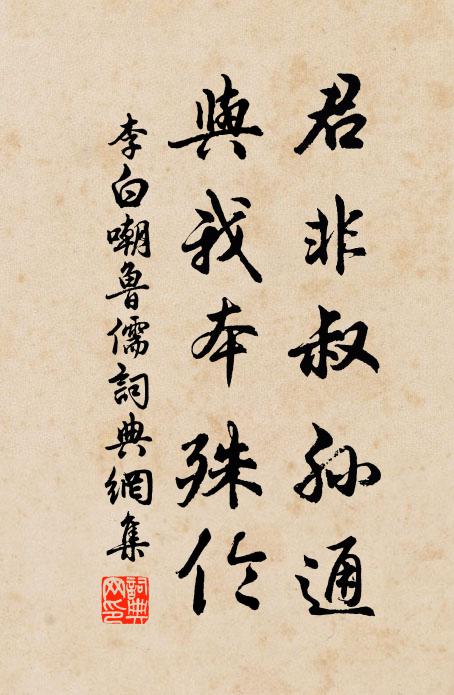 君非叔孙通
與我本殊伦
李白嘲魯儒詞典網集
詞典